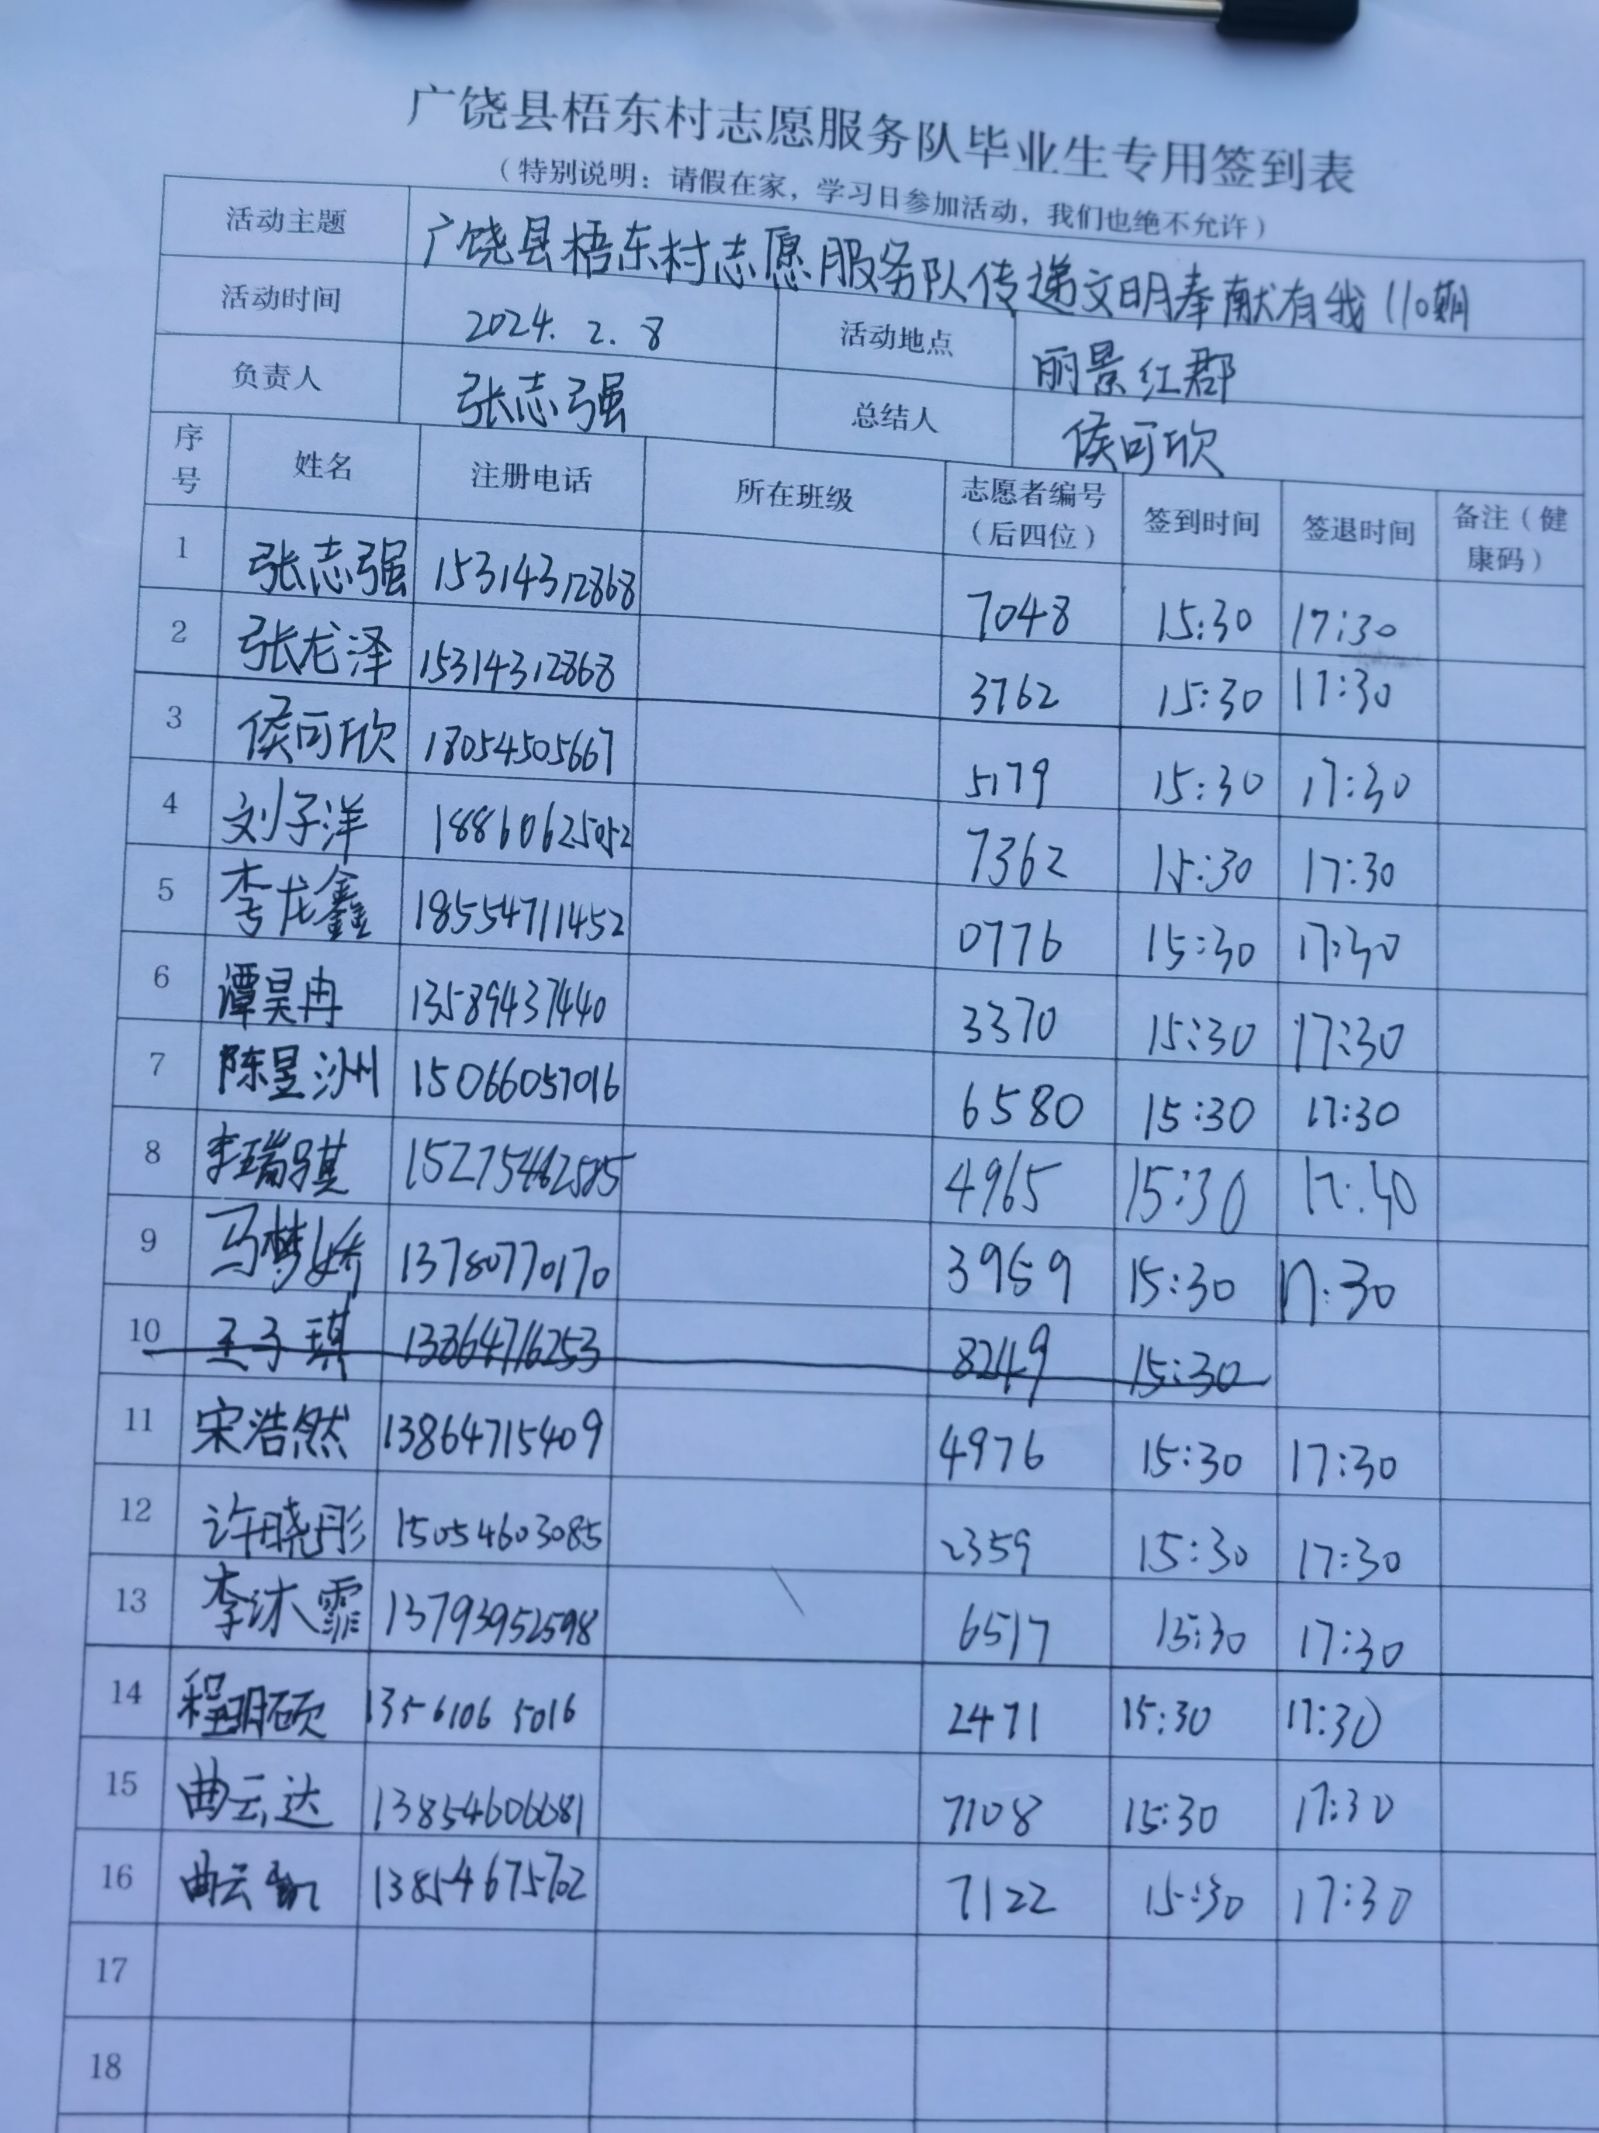 广饶县梧东村志愿服务队毕业生专用签到表
（特别说明：请假在家，学习日参加活动，我们也绝不允许）
活动主题 广饶县梧东村志愿服务队传递文明奉献有我110期
活动时间 2024.2.8 活动地点 丽景红郡
负责人 张志强 总结人 侯可欣
序号 姓名 注册电话 所在班级 志愿者编号（后四位） 签到时间 签退时间 备注（健康码）
1 张志强 15314312868 7048 15:30 17:30
2 张龙泽 15314312868 3762 15:30 17:30
3 侯可欣 18054505667 5179 15:30 17:30
4 刘子洋 18860625052 7362 15:30 17:30
5 李龙鑫 18554711452 0776 15:30 17:30
6 谭昊冉 13589437440 3370 15:30 17:30
7 陈昱洲 15066057016 6580 15:30 17:30
8 李瑞骐 4965 15:30 17:30
9 马梦娇 13780770170 3959 15:30 17:30
10 王子琪 13864716253 8249 15:30
11 宋浩然 13864715409 4976 15:30 17:30
12 许晓彤 15054603085 2359 15:30 17:30
13 李沐霏 13793952598 6517 15:30 17:30
14 程明硕 13561065016 2471 15:30 17:30
15 曲云达 13854606681 7108 15:30 17:30
16 曲云凯 13854675702 7122 15:30 17:30
17
18